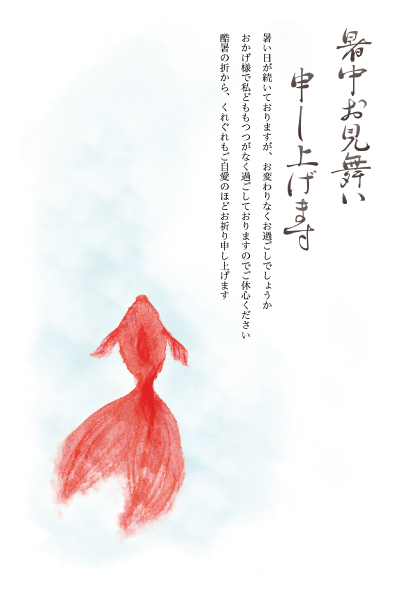 暑中お見舞い
申し上げます
暑い日が続いておりますが、お変わりなくお過ごしでしょうか
おかげ様で私どももつつがなく過ごしておりますのでご休心ください
酷暑の折から、くれぐれもご自愛のほどお祈り申し上げます